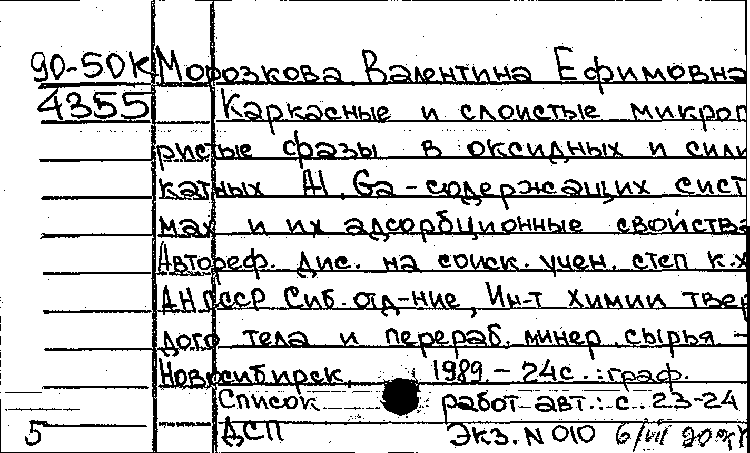 90-50К Морозкова Валентина Ефимовна
4355 Каркасные и слоистые микроп
ристые фразы в оксидных и сили
катных Al, Ga-содержащих сист
мах и их адсорбционные свойства
Автореф. дис. на соиск. учен. степ к.х
АН СССР Сиб. отд-ние, Ин-т химии твер
дого тела и перераб. минер. сырья -
Новосибирск, 1989. - 24с.: граф.
Список работ авт.: с. 23-24
5 ДСП Экз. N 010 6/VII